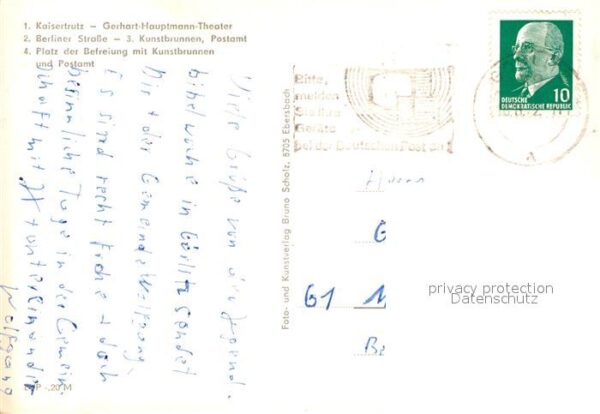 1. Kaisertrutz – Gerhart-Hauptmann-Theater
2. Berliner Straße – 3. Kunstbrunnen, Postamt
4. Platz der Befreiung mit Kunstbrunnen
und Postamt
Viele Grüße von der Jugend-
bibelwoche in Görlitz sendet
Dir + der Gemeinde Wolfgang.
Es sind recht frohe + doch
besinnliche Tage in der Gemein-
schaft mit + untereinander
Wolfgang
-,20 M
Foto- und Kunstverlag Bruno Scholz, 8705 Ebersbach
Bitte
melden
Sie Ihre
Geräte
bei der Deutschen Post an
DEUTSCHE
DEMOKRATISCHE REPUBLIK
10
Herrn
G
61 M
privacy protection
Datenschutz